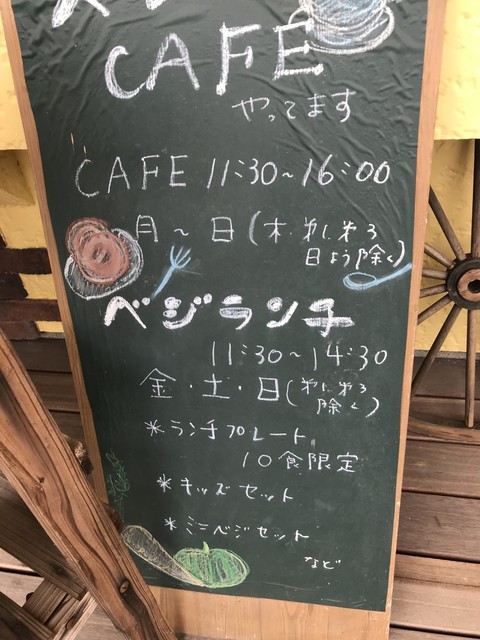 CAFE
やってます
CAFE 11:30～16:00
月～日(木・第1、第3
日よう除く)
ベジランチ
11:30～14:30
金・土・日(第1、第3
除く)
*ランチプレート
10食限定
*キッズセット
*ミニベジセット
など